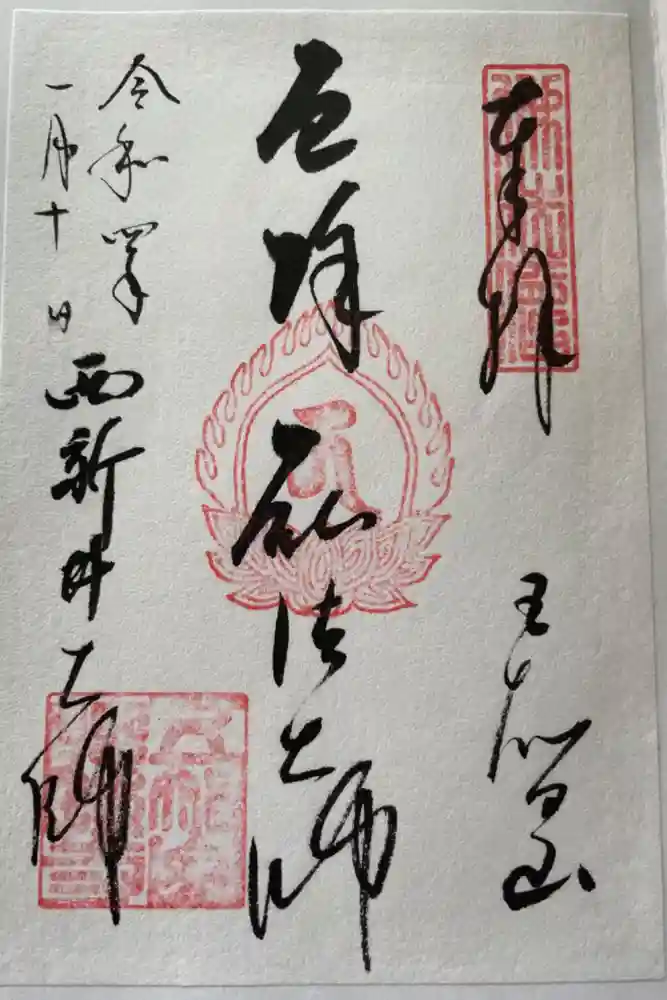 奉拝
五智山
厄除弘法大師
令和四年
一月十日
西新井大師